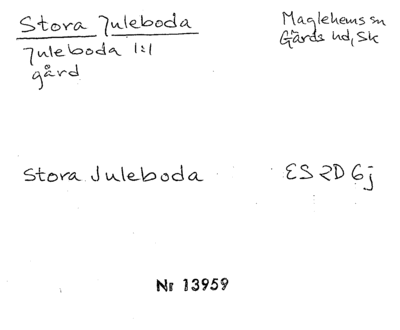 Stora Juleboda
Juleboda 1:1
gård
Maglehems sn
Gärds hd, Sk
Stora Juleboda
ES 2D 6j
Nr 13959